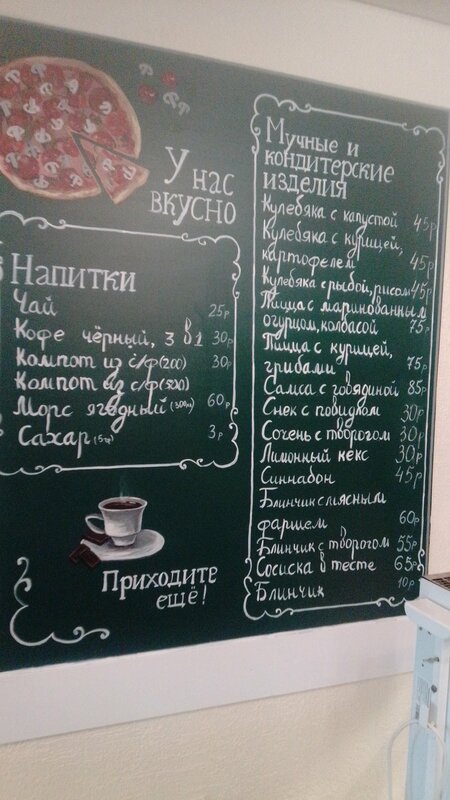 У нас
вкусно
Напитки
Чай 25р
Кофе чёрный, 3 в 1 30р
Компот из с/ф (200) 30р
Компот из с/ф (500)
Морс ягодный (300мл) 60р
Сахар (5гр) 3р
Приходите
ещё!
Мучные и
кондитерские
изделия
Кулебяка с капустой 45р
Кулебяка с курицей,
картофелем 45р
Кулебяка с рыбой, рисом 45р
Пицца с маринованным
огурцом, колбасой 75р
Пицца с курицей,
грибами 75р
Самса с говядиной 85р
Снек с повидлом 30р
Сочень с творогом 30р
Лимонный кекс 30р
Синнабон 45р
Блинчик с мясным
фаршем 60р
Блинчик с творогом 55р
Сосиска в тесте 65р
Блинчик 10р